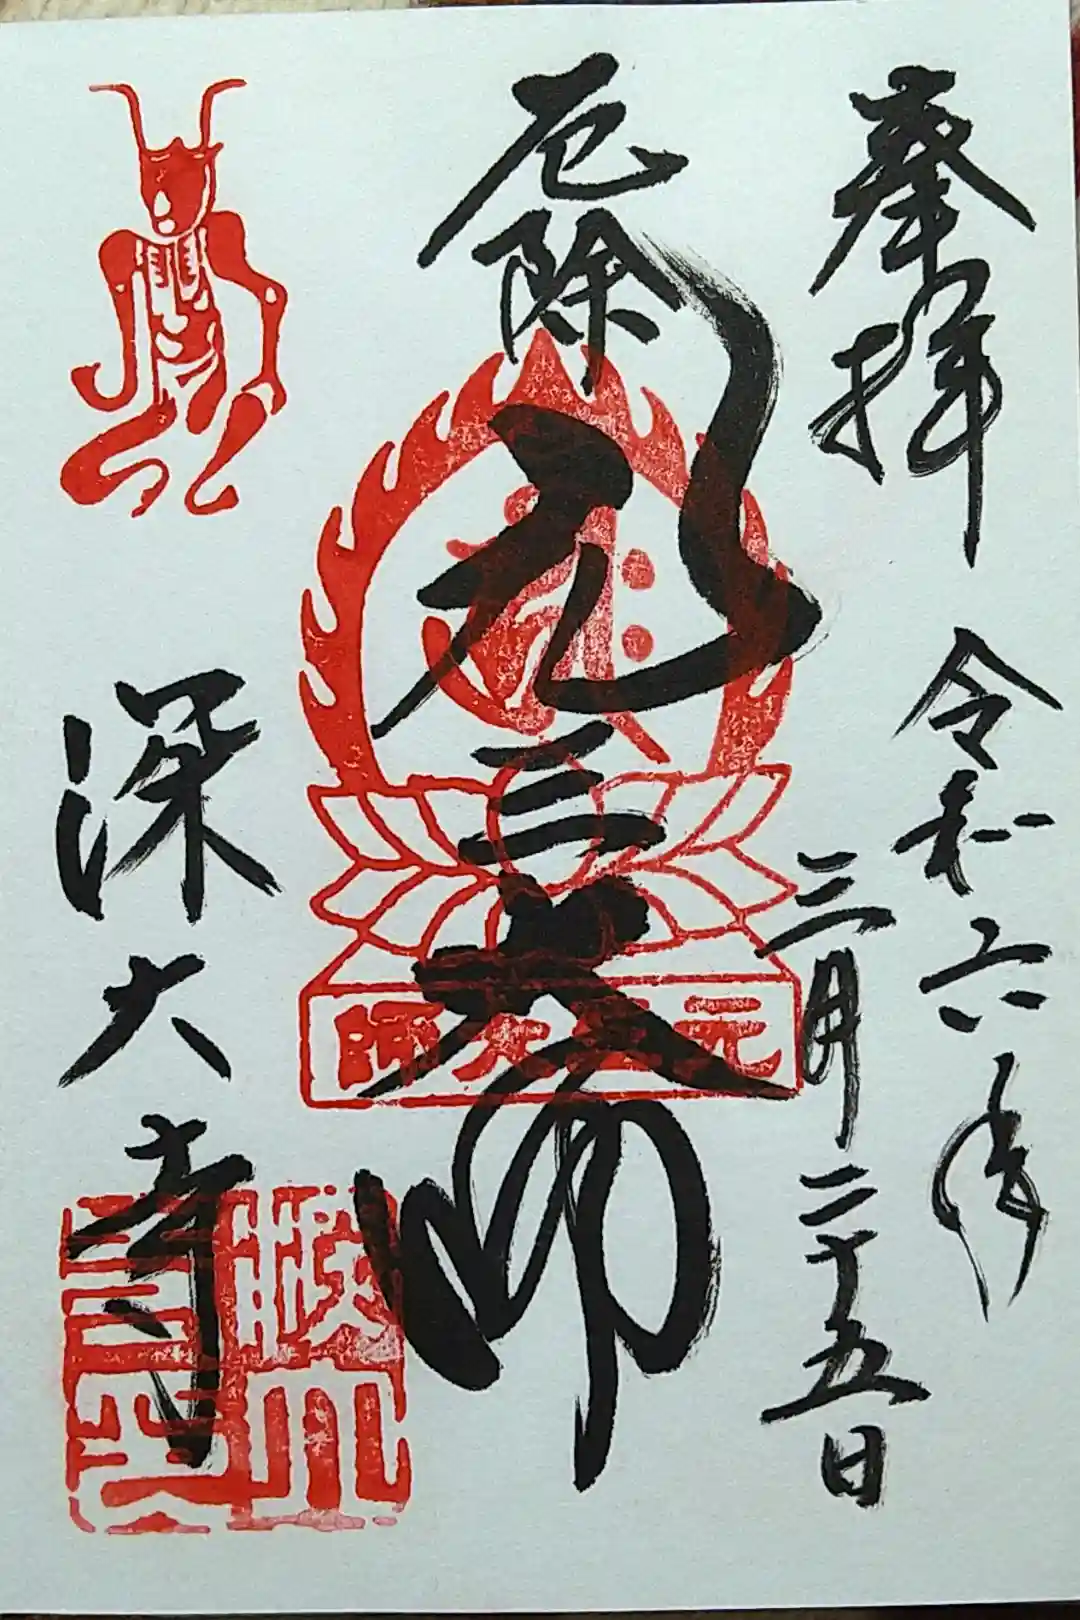 奉拝 令和六年
三月二十五日
厄除 元三大師
元三大師
深大寺